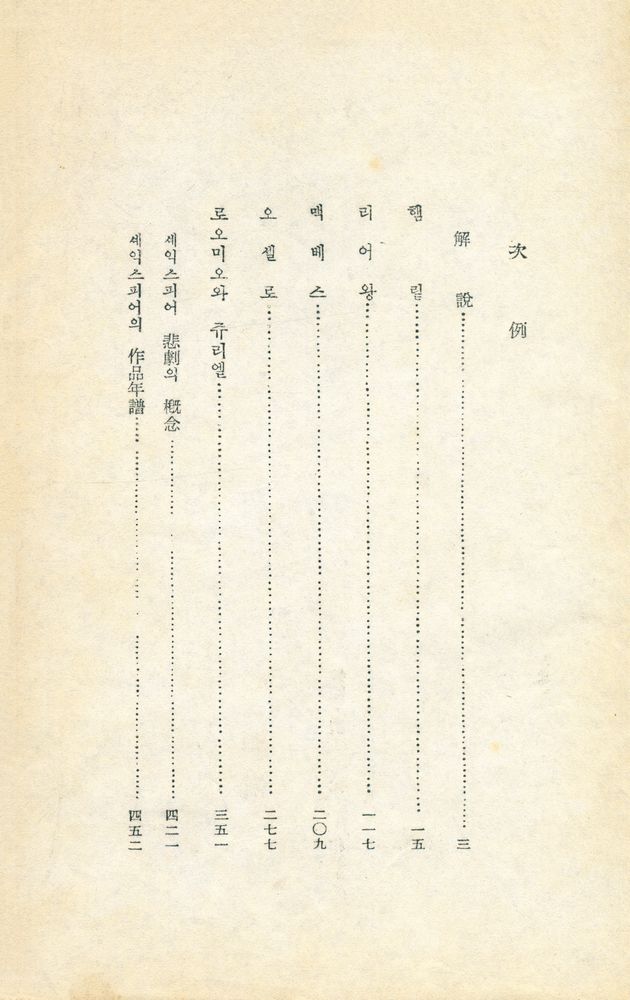 次例
解說 三
햄릴 一五
리어왕 一一七
맥베스 二〇九
오셀로 二七七
로오미오와 쥬리엘 三五一
셰익스피어 悲劇의 槪念 四二一
셰익스피어의 作品年譜 四五二